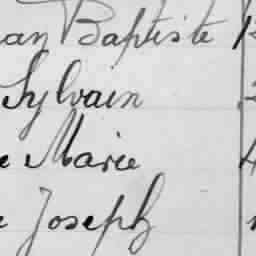 an Baptiste
Sylvain
e Marie
e Joseph